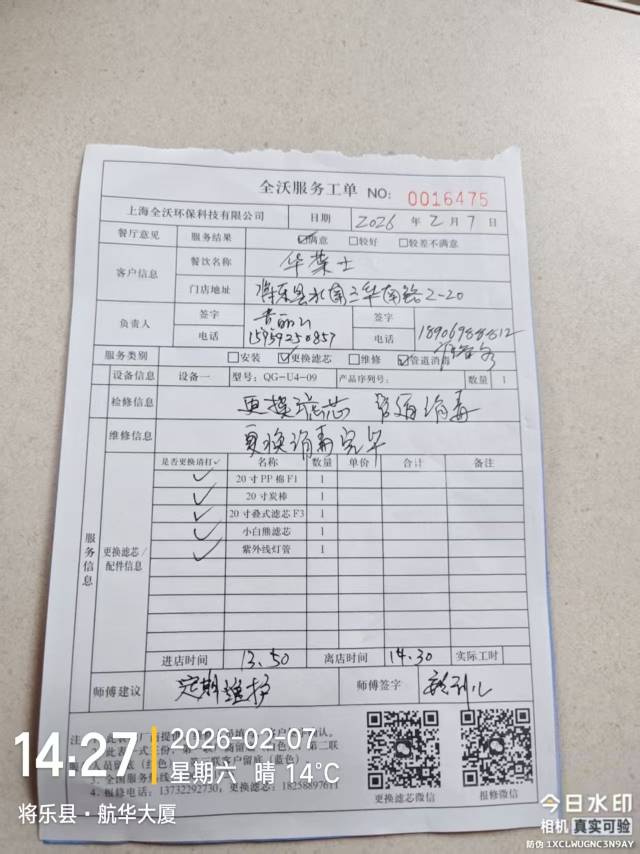 全沃服务工单 NO: 0016475
上海全沃环保科技有限公司 日期 2026 年 2 月 7 日
餐厅意见 服务结果 ☑满意 □较好 □较差不满意
客户信息 餐饮名称 华莱士
门店地址 将乐县水南三华南路2-20
负责人 签字 签字
电话 15959250857 电话 18906988812
服务类别 □安装 ☑更换滤芯 □维修 ☑管道消毒
设备信息 设备一 型号: QG-U4-09 产品序列号: 数量 1
检修信息 更换滤芯 管道消毒
维修信息 更换消毒完毕
服务信息 更换滤芯/配件信息
是否更换请打✓ 名称 数量 单价 合计 备注
✓ 20寸PP棉F1 1
✓ 20寸炭棒 1
✓ 20寸叠式滤芯F3 1
✓ 小白熊滤芯 1
✓ 紫外线灯管 1
进店时间 13.50 离店时间 14.30 实际工时
师傅建议 定期维护 师傅签字
注
4. 报修电话: 13732292730, 更换滤芯: 18258897611
更换滤芯微信 报修微信
14:27 2026-02-07
星期六 晴 14℃
将乐县·航华大厦
今日水印
相机 真实可验
防伪 1XCLWUGNC3N9AY